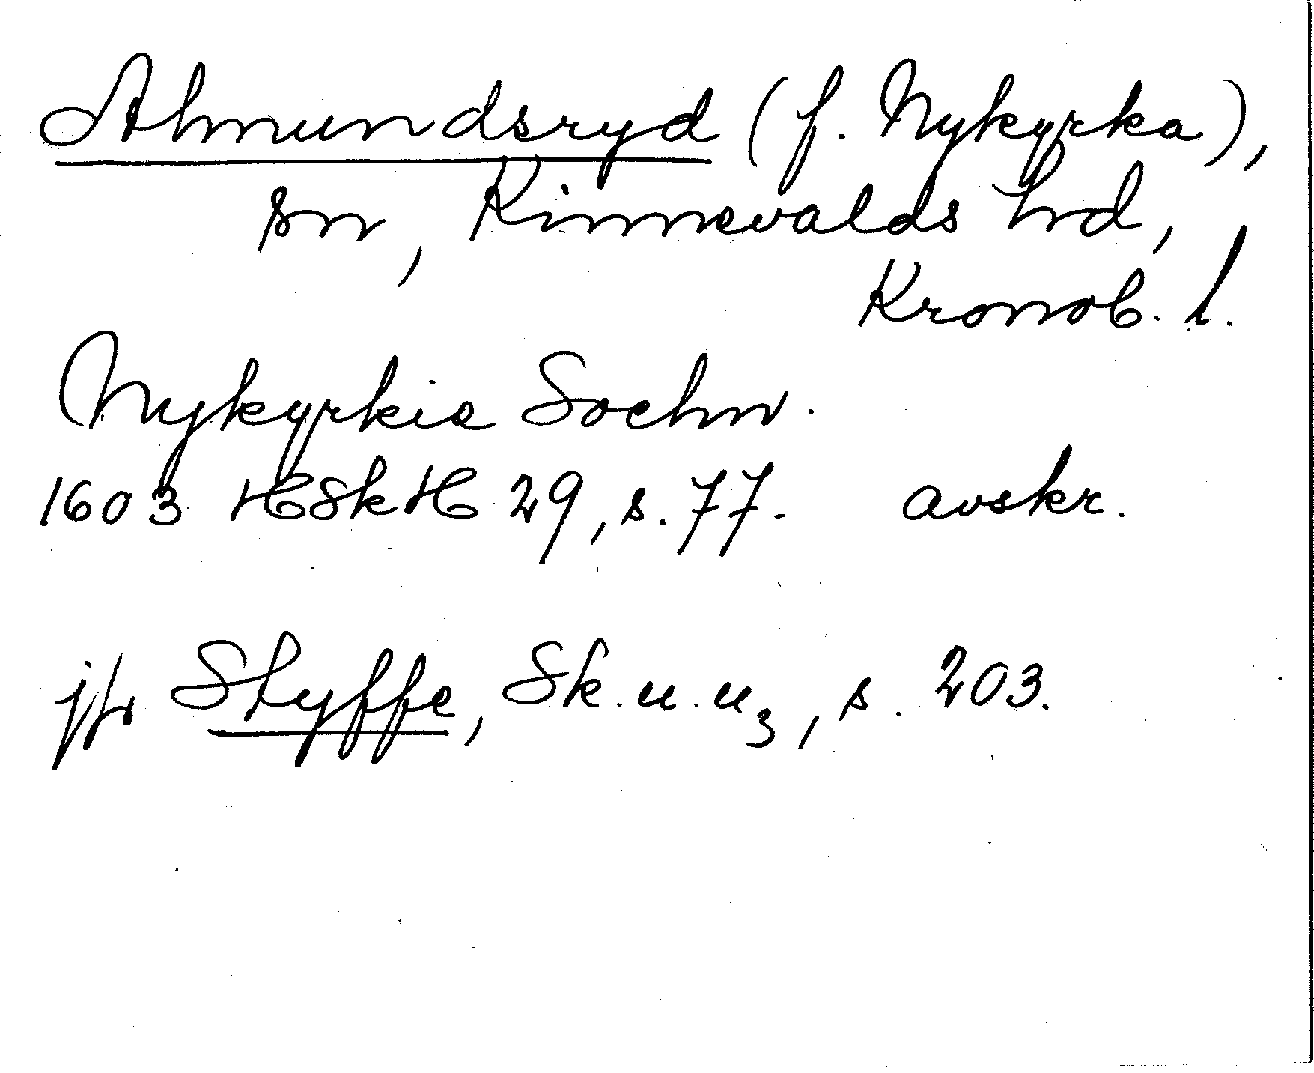 Almundsryd (f. Nykyrka),
sn, Kinnevalds hd,
Kronob. l.
Nykyrkie Sochn.
1603 HSkH 29, s. 77. avskr.
jfr Styffe, Sk.u.u3, s. 203.